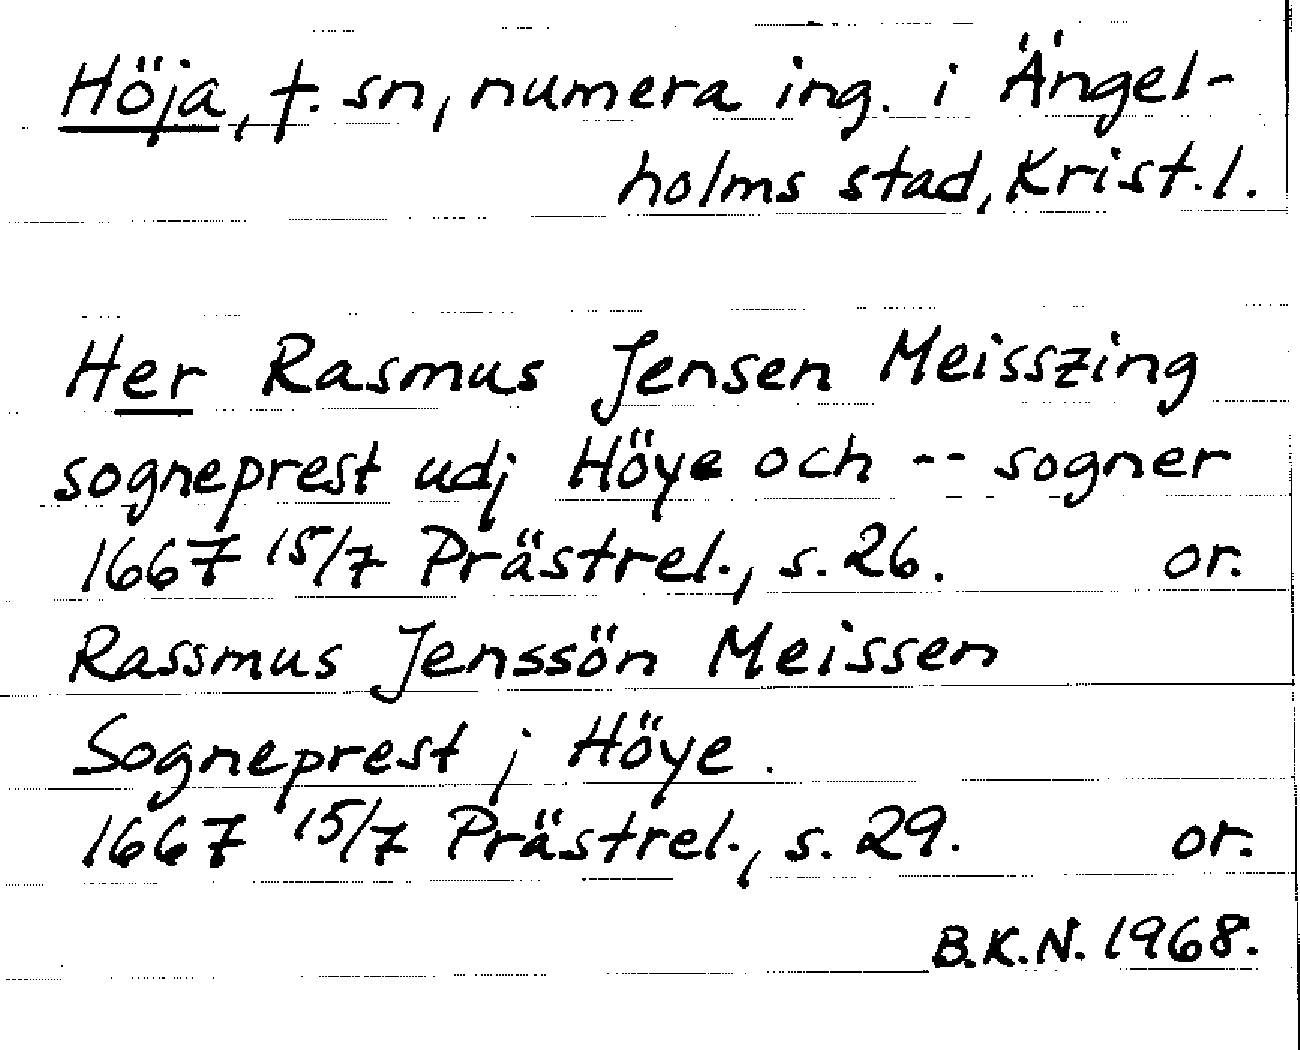 Höja, f. sn, numera ing. i Ängel-
holms stad, Krist. l.
Her Rasmus Jensen Meisszing
sogneprest udj Höye och -- sogner
1667 15/7 Prästrel., s. 26. or.
Rassmus Jenssön Meissen
Sogneprest j Höye.
1667 15/7 Prästrel., s. 29. or.
B.K.N. 1968.